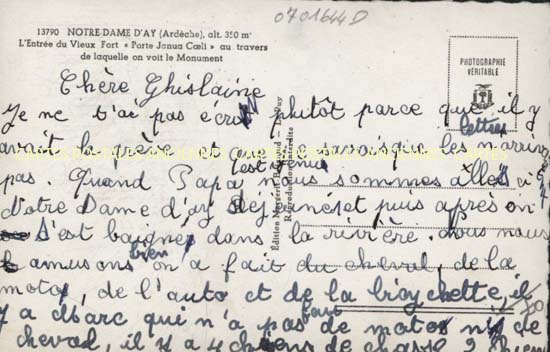 0701644D
13790 NOTRE-DAME D'AY (Ardèche), alt. 350 m
L'Entrée du Vieux Fort « Porte Janua Cœli » au travers
de laquelle on voit le Monument
PHOTOGRAPHIE
VÉRITABLE
Chère Ghislaine
Je ne t'ai pas écrit plutôt parce que il y
avait la grève et que je savais que les lettres
pas. Quand Papa est venu nous sommes allés à
Notre Dame d'ay et puis après on
s'est baigner dans la rivière. Nous nous
amusons bien on a fait du cheval, de la
moto, de l'auto et de la , il
y a Marc qui n'a pas tout de motos ni de
cheval, il y a 4 chiens de chasse 2
Edition Margerit-Brémond - Le Puy
Reproduction interdite